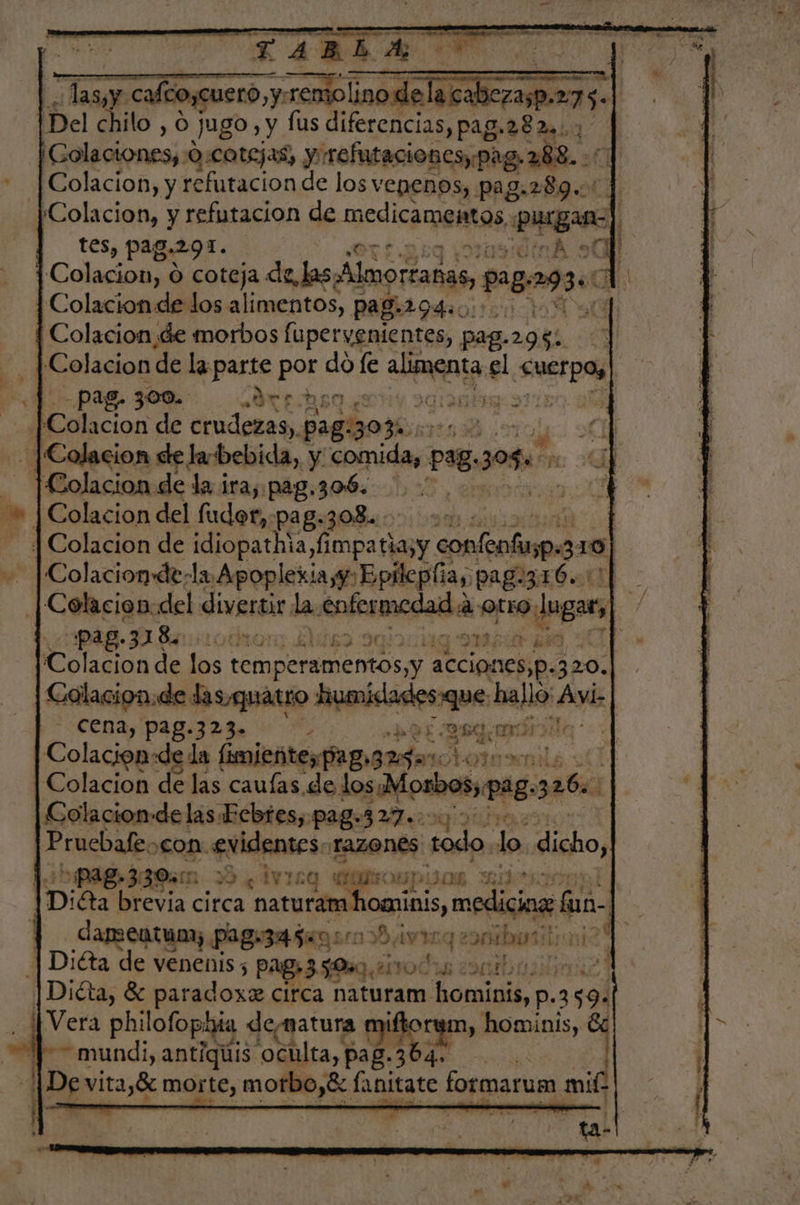 TABLA
las,y cafco,cuero,y remolino de la cabeza,p.275.
Del chilo , ò jugo , y fus diferencias, pag.282.
Colaciones, ò cotejas, y refutaciones, pag. 288.
Colacion, y refutacion de los venenos, pag.289.
Colacion, y refutacion de medicamentos purgan-
tes, pag.291.
Colacion, ò coteja de las Almorranas, pag.293.
Colacion de los alimentos, pag.294.
Colacion de morbos fupervenientes, pag.295.
Colacion de la parte por dò fe alimenta el cuerpo,
pag. 300.
Colacion de crudezas, pag.303.
Colacion de la bebida, y comida, pag.305.
Colacion de la ira, pag.306.
Colacion del fudor, pag.308.
Colacion de idiopathia,fimpatia,y confenfu,p.310
Colacion de la Apoplexia,y Epilepfia, pag.316.
Colacion del divertir la enfermedad à otro lugar,
pag.318.
Colacion de los temperamentos,y acciones,p.320.
Colacion de las quatro humidades que hallo Avi-
cena, pag.323.
Colacion de la fimiente, pag.325.
Colacion de las caufas de los Morbos, pag.326.
Colacion de las Febres, pag.327.
Pruebafe con evidentes razones todo lo dicho,
pag.330.
Dicta brevia circa naturam hominis, medicinæ fun-
damentum, pag.345.
Dicta de venenis, pag.350.
Dicta, & paradoxæ circa naturam hominis, p.359.
Vera philofophia de natura miftorum, hominis, &
mundi, antiquis oculta, pag.364.
De vita,& morte, morbo,& fanitate formarum mif-
ta-